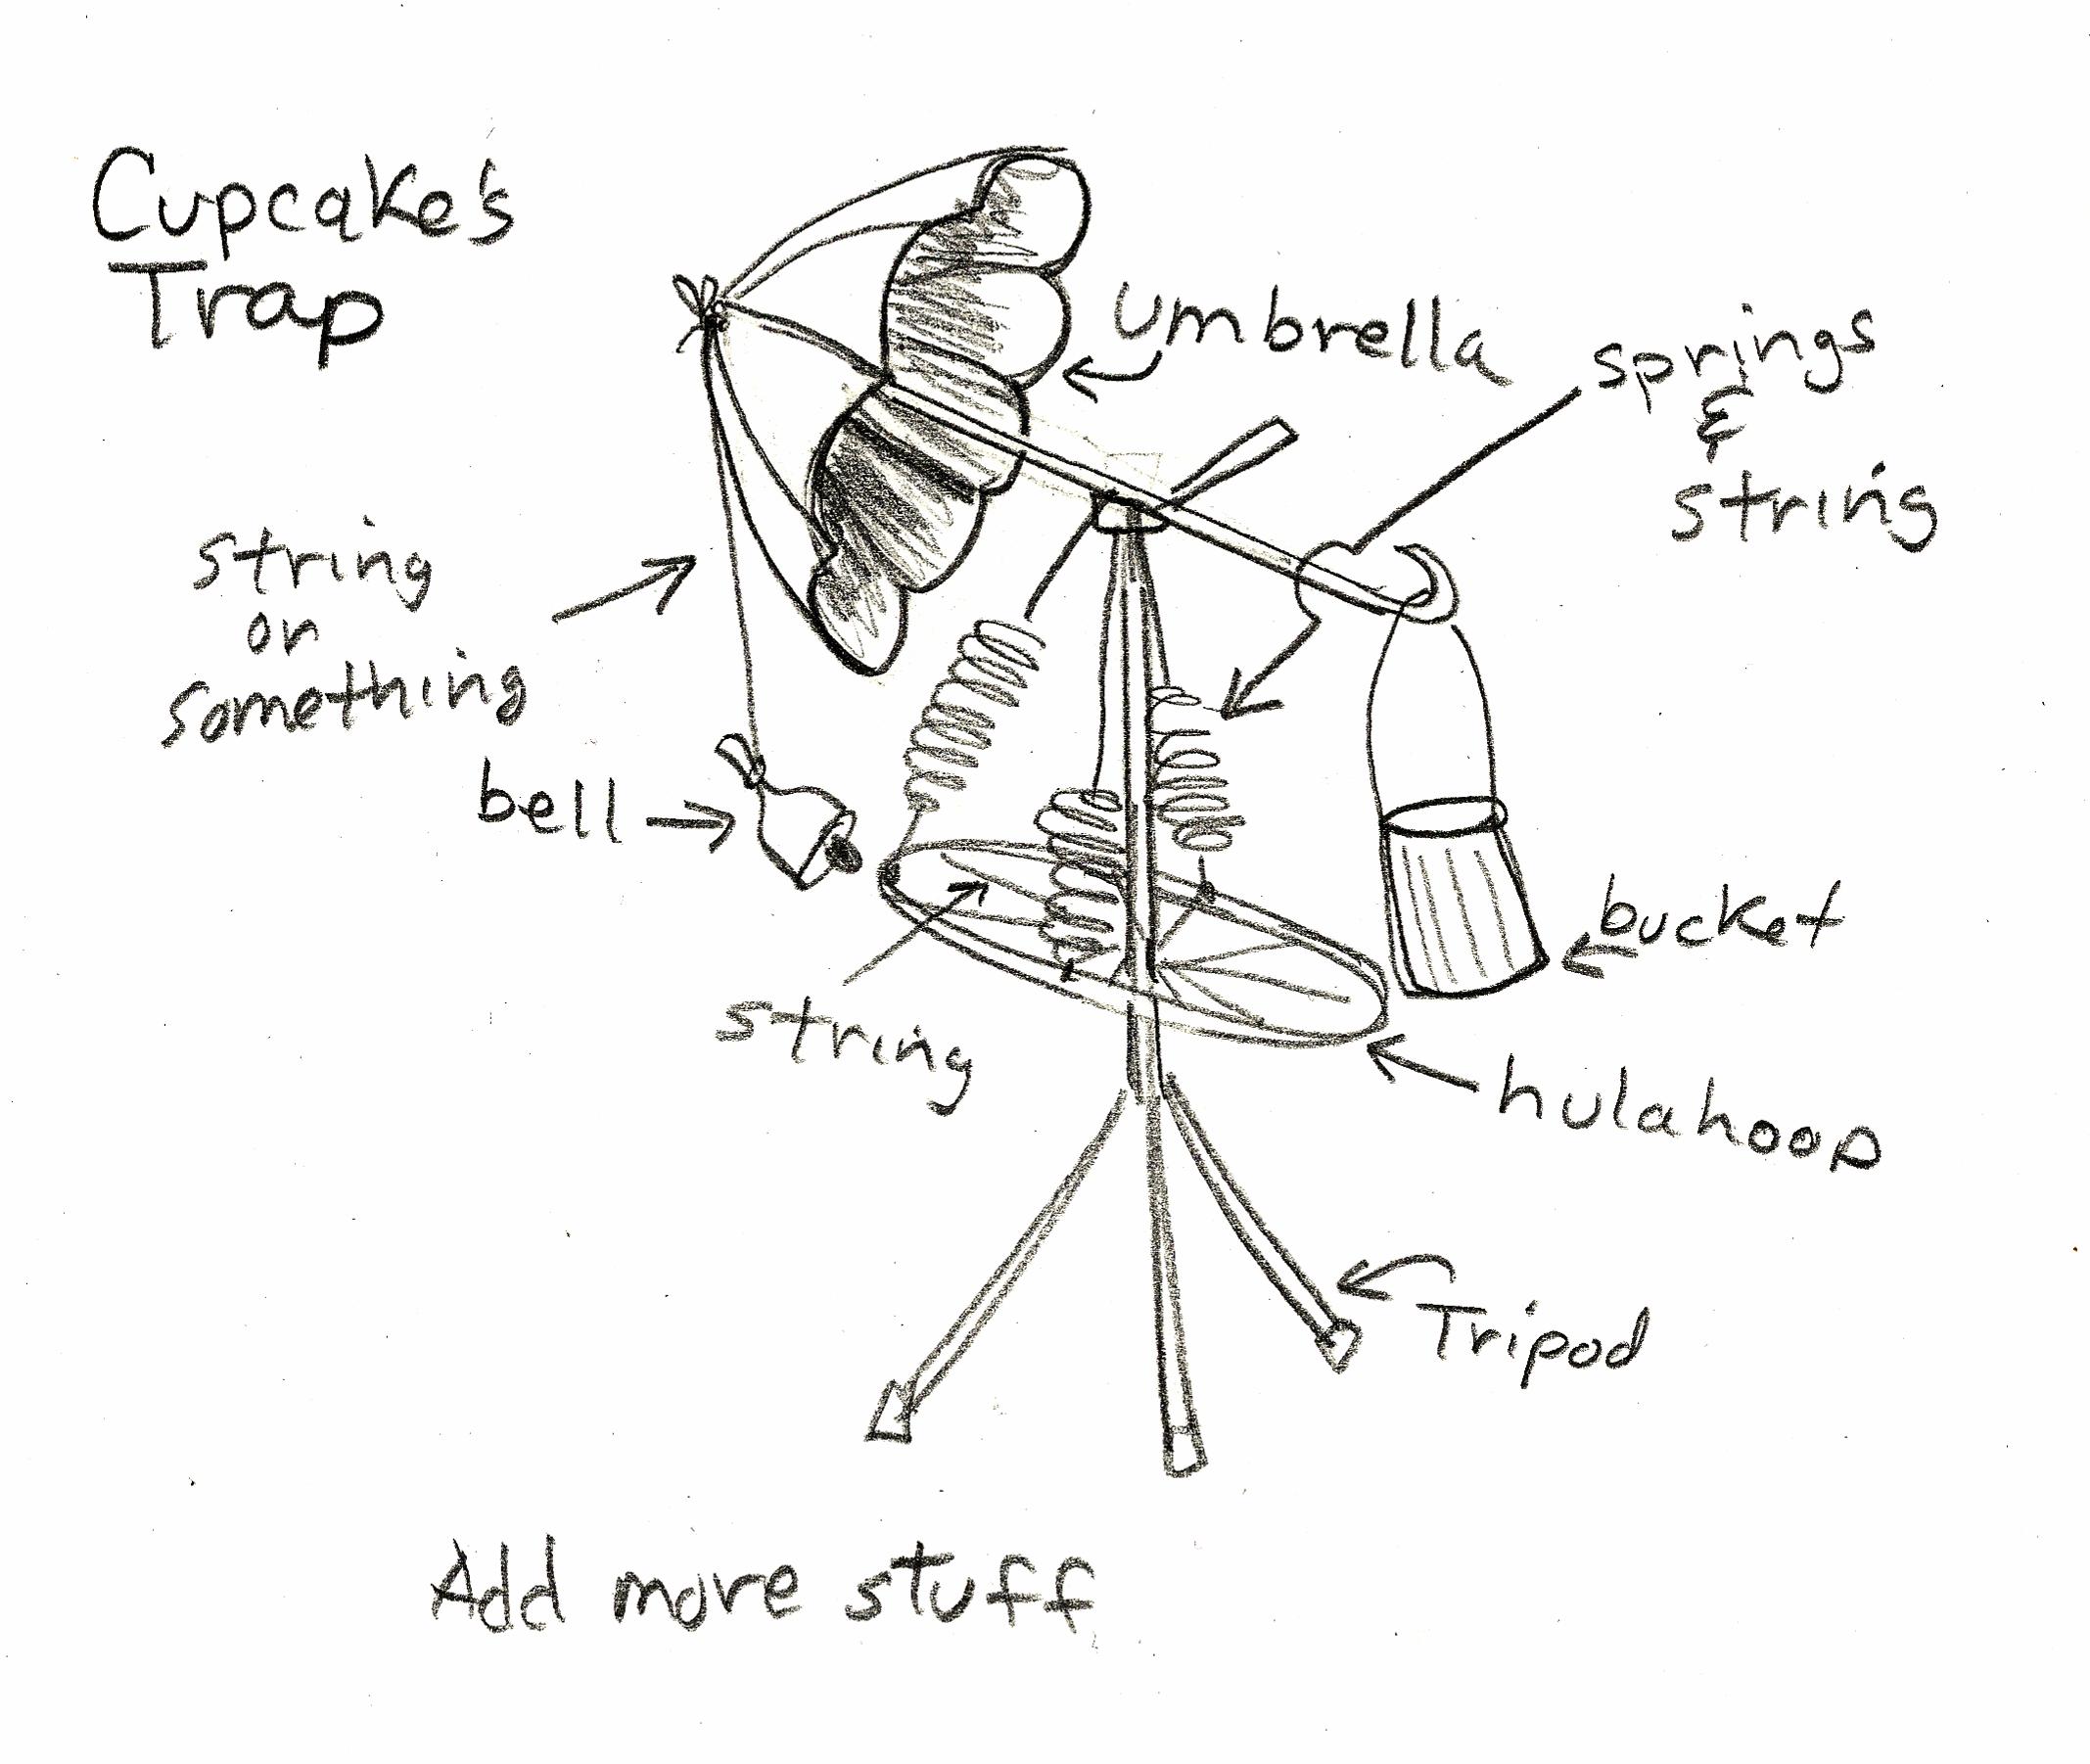 Cupcake's
Trap
umbrella
springs
&
string
string
or
something
bell
bucket
string
hulahoop
Tripod
Add more stuff